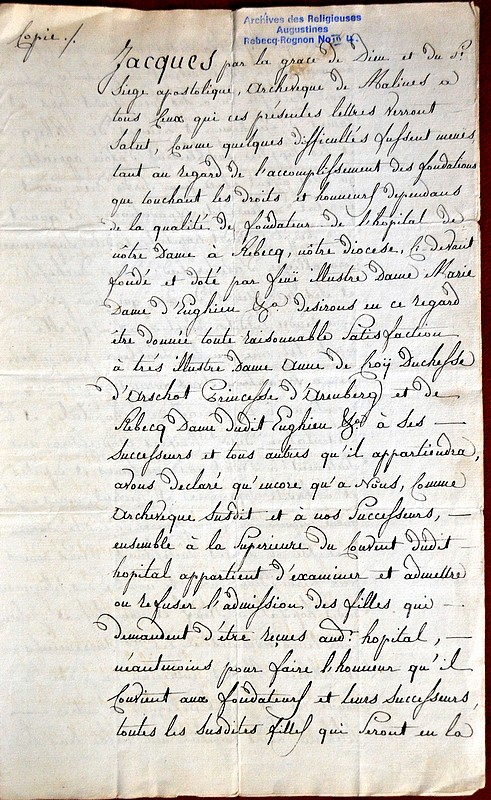 Copie ./.
Archives des Religieuses
Augustines
Rebecq-Rognon No 4.
Jacques par la grace de Dieu et du St.
Siège apostolique, Archevèque de Malines a
tous ceux qui ces présentes lettres verront
Salut, Comme quelques difficultés fussent meues
tant au regard de l'accomplissement des fondations
que touchant les droits et honneurs dependans
de la qualité de fondateur de l'hopital de
nôtre Dame à Rebecq, nôtre diocese, Ci devant
fondé et doté par feüe illustre Dame Marie
Dame d'Enghien &a desirous en ce regard
être donnée toute raisonnable Satisfaction
à trés illustre Dame Anne de Croÿ Duchesse
d'Arschot Princesse d'Aremberg et de
Rebecq Dame dudit Enghien &a à Ses —
Successeurs et tous autres qu'il appartiendra,
avons declaré qu'encore qu'a Nous, Comme
Archevèque Susdit et à nos Successeurs, —
ensemble à la Superieure du Couvent dudit —
hopital appartient d'examiner et admettre
ou refuser l'admission des filles qui —
demandent d'être reçues audt. hopital, —
néantmoins pour faire l'honneur qu'il
Convient aux fondateurs et leurs successeurs,
toutes les Susdites filles qui Seront en la